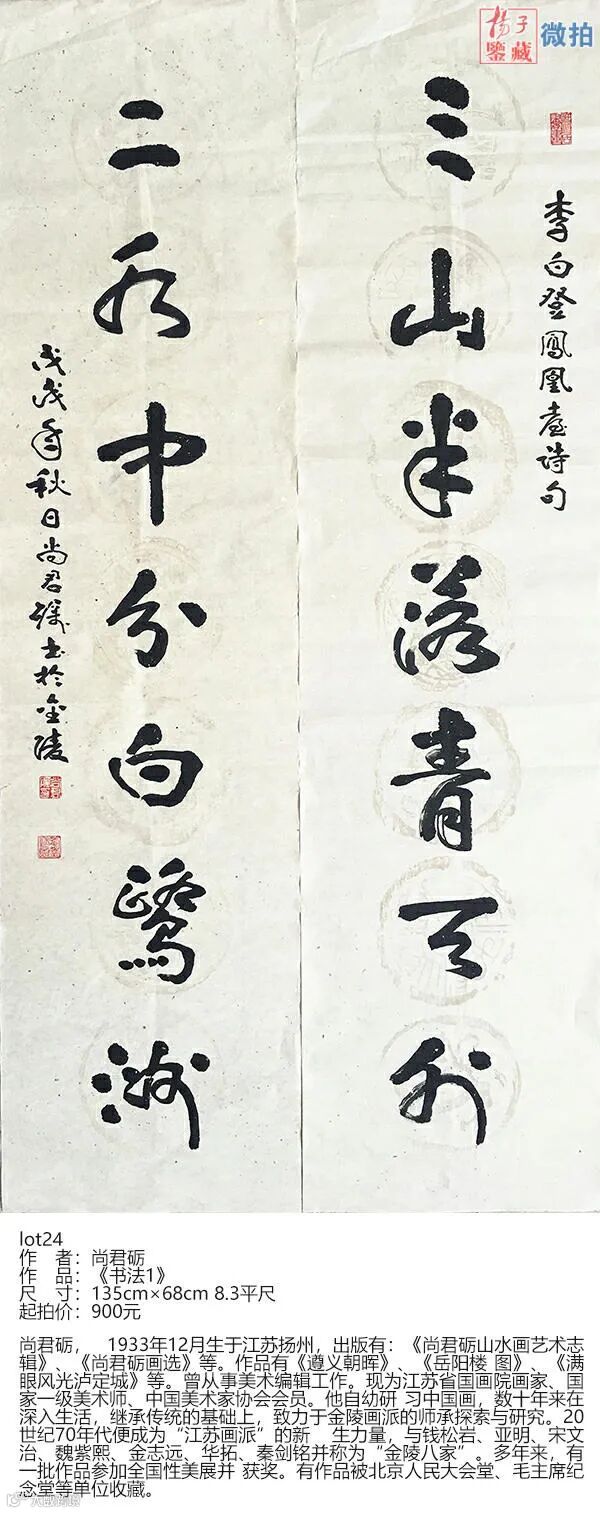 揚子
鑒藏
微拍
李白登鳳凰臺诗句
三山半落青天外
二水中分白鹭洲
戊戌年秋日尚君砺书於金陵
lot24
作 者：尚君砺
作 品：《书法1》
尺 寸：135cm×68cm 8.3平尺
起拍价：900元
尚君砺， 1933年12月生于江苏扬州，出版有：《尚君砺山水画艺术志
辑》、《尚君砺画选》等。作品有《遵义朝晖》、《岳阳楼 图》、《满
眼风光泸定城》等。曾从事美术编辑工作。现为江苏省国画院画家、国
家一级美术师、中国美术家协会会员。他自幼研 习中国画，数十年来在
深入生活，继承传统的基础上，致力于金陵画派的师承探索与研究。20
世纪70年代便成为“江苏画派”的新 生力量，与钱松岩、亚明、宋文
治、魏紫熙、金志远、华拓、秦剑铭并称为“金陵八家”。多年来，有
一批作品参加全国性美展并 获奖。有作品被北京人民大会堂、毛主席纪
念堂等单位收藏。